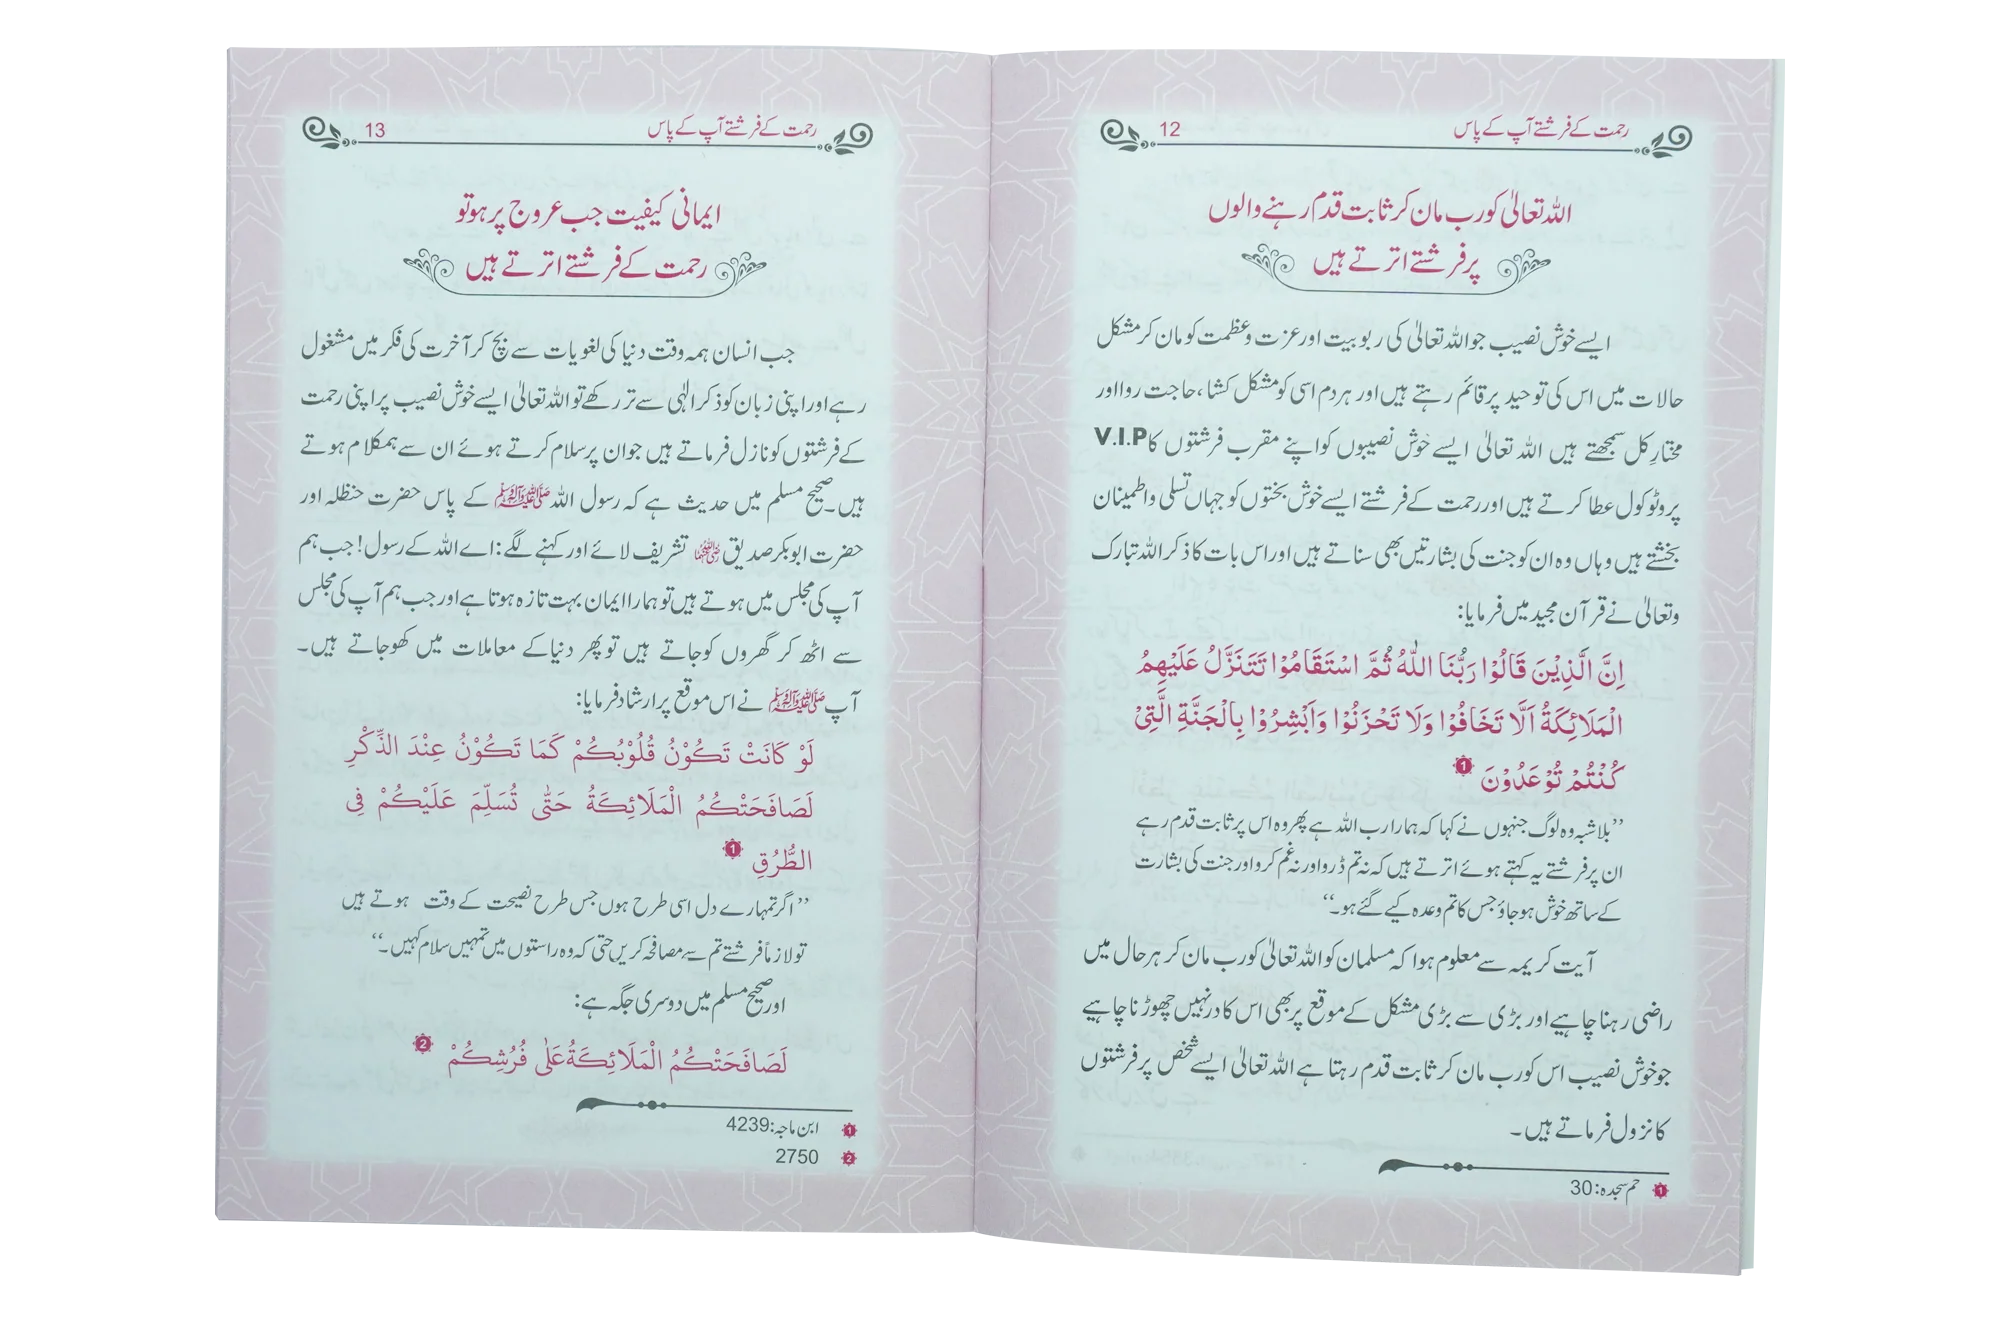 رحمت کے فرشتے آپ کے پاس 12
اللہ تعالیٰ کو رب مان کر ثابت قدم رہنے والوں
پر فرشتے اترتے ہیں
ایسے خوش نصیب جو اللہ تعالیٰ کی ربوبیت اور عزت و عظمت کو مان کر مشکل
حالات میں اس کی توحید پر قائم رہتے ہیں اور ہر دم اسی کو مشکل کشا، حاجت روا اور
مختارِ کل سمجھتے ہیں اللہ تعالیٰ ایسے خوش نصیبوں کو اپنے مقرب فرشتوں کا V.I.P
پروٹوکول عطا کرتے ہیں اور رحمت کے فرشتے ایسے خوش بختوں کو جہاں تسلی و اطمینان
بخشتے ہیں وہاں وہ ان کو جنت کی بشارتیں بھی سناتے ہیں اور اس بات کا ذکر اللہ تبارک
وتعالیٰ نے قرآن مجید میں فرمایا:
اِنَّ الَّذِيْنَ قَالُوْا رَبُّنَا اللّٰهُ ثُمَّ اسْتَقَامُوْا تَتَنَزَّلُ عَلَيْهِمُ
الْمَلَائِكَةُ اَلَّا تَخَافُوْا وَلَا تَحْزَنُوْا وَاَبْشِرُوْا بِالْجَنَّةِ الَّتِيْ
كُنْتُمْ تُوْعَدُوْنَ 1
’’بلاشبہ وہ لوگ جنہوں نے کہا کہ ہمارا رب اللہ ہے پھر وہ اس پر ثابت قدم رہے
ان پر فرشتے یہ کہتے ہوئے اترتے ہیں کہ نہ تم ڈرو اور نہ غم کرو اور جنت کی بشارت
کے ساتھ خوش ہو جاؤ جس کا تم وعدہ کیے گئے ہو۔‘‘
آیت کریمہ سے معلوم ہوا کہ مسلمان کو اللہ تعالیٰ کو رب مان کر ہر حال میں
راضی رہنا چاہیے اور بڑی سے بڑی مشکل کے موقع پر بھی اس کا در نہیں چھوڑنا چاہیے
جو خوش نصیب اس کو رب مان کر ثابت قدم رہتا ہے اللہ تعالیٰ ایسے شخص پر فرشتوں
کا نزول فرماتے ہیں۔
1 حم سجدہ: 30
رحمت کے فرشتے آپ کے پاس 13
ایمانی کیفیت جب عروج پر ہو تو
رحمت کے فرشتے اترتے ہیں
جب انسان ہمہ وقت دنیا کی لغویات سے بچ کر آخرت کی فکر میں مشغول
رہے اور اپنی زبان کو ذکر الٰہی سے تر رکھے تو اللہ تعالیٰ ایسے خوش نصیب پر اپنی رحمت
کے فرشتوں کو نازل فرماتے ہیں جو ان پر سلام کرتے ہوئے ان سے ہمکلام ہوتے
ہیں۔ صحیح مسلم میں حدیث ہے کہ رسول اللہ ﷺ کے پاس حضرت حنظلہ اور
حضرت ابوبکر صدیق رضی اللہ عنہما تشریف لائے اور کہنے لگے: اے اللہ کے رسول! جب ہم
آپ کی مجلس میں ہوتے ہیں تو ہمارا ایمان بہت تازہ ہوتا ہے اور جب ہم آپ کی مجلس
سے اٹھ کر گھروں کو جاتے ہیں تو پھر دنیا کے معاملات میں کھو جاتے ہیں۔
آپ ﷺ نے اس موقع پر ارشاد فرمایا:
لَوْ كَانَتْ تَكُوْنُ قُلُوْبُكُمْ كَمَا تَكُوْنُ عِنْدَ الذِّكْرِ
لَصَافَحَتْكُمُ الْمَلَائِكَةُ حَتّٰى تُسَلِّمَ عَلَيْكُمْ فِي
الطُّرُقِ 1
’’اگر تمہارے دل اسی طرح ہوں جس طرح نصیحت کے وقت ہوتے ہیں
تو لازماً فرشتے تم سے مصافحہ کریں حتی کہ وہ راستوں میں تمہیں سلام کہیں۔‘‘
اور صحیح مسلم میں دوسری جگہ ہے:
لَصَافَحَتْكُمُ الْمَلَائِكَةُ عَلٰى فُرُشِكُمْ 2
1 ابن ماجہ: 4239
2 2750